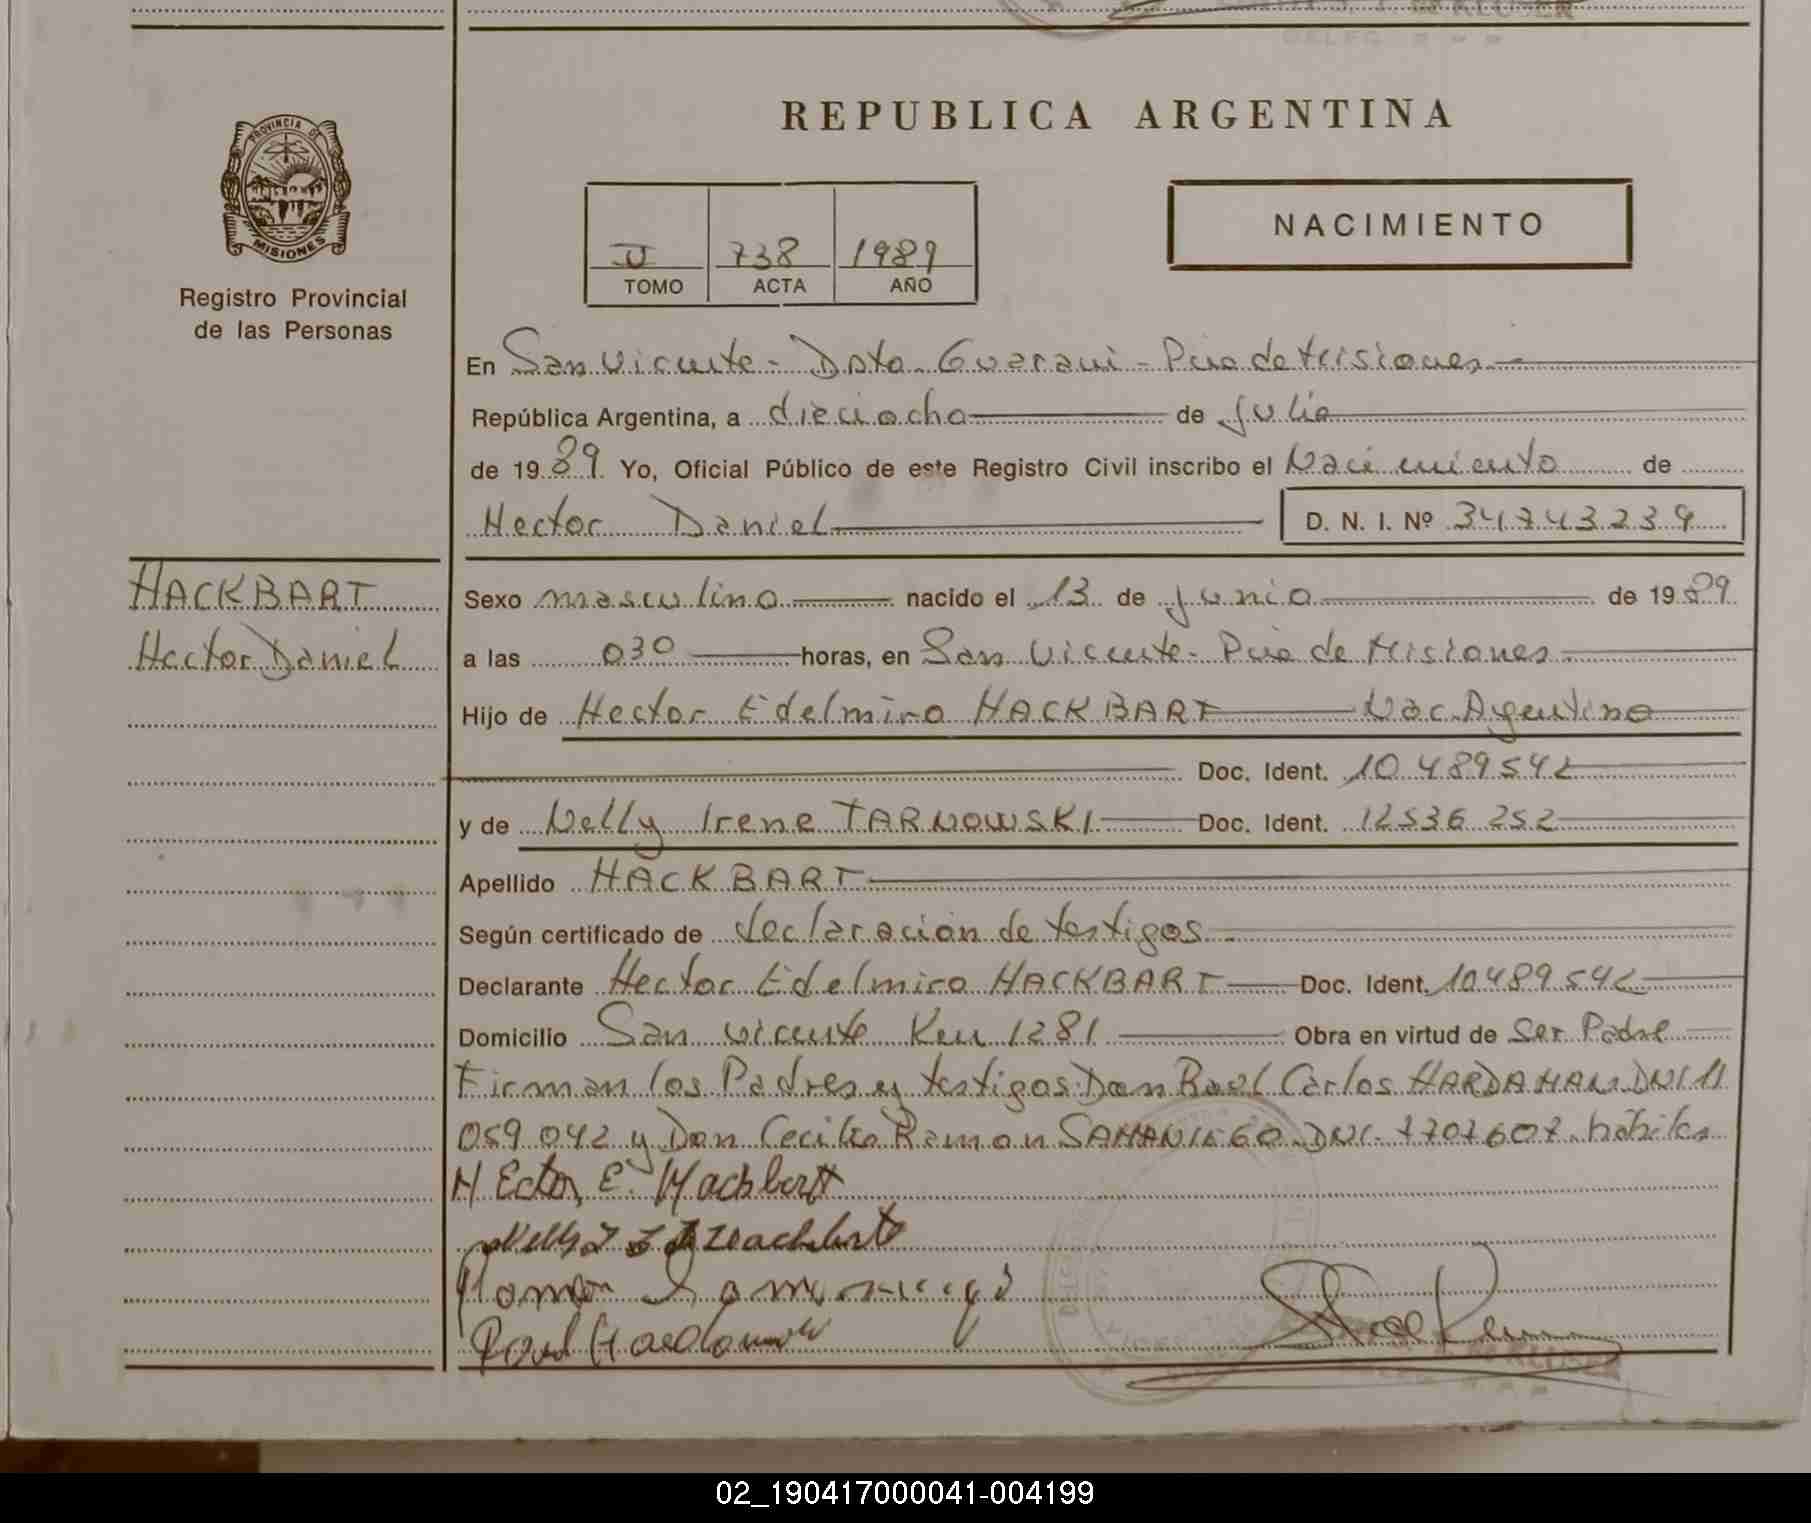 REPUBLICA ARGENTINA
PROVINCIA DE
MISIONES
Registro Provincial
de las Personas
738 1989
TOMO ACTA AÑO
NACIMIENTO
En San Vicente - Dpto. Guarani - Pcia de Misiones
República Argentina, a dieciocho de Julio
de 1989. Yo, Oficial Público de este Registro Civil inscribo el Nacimiento de
Hector Daniel D. N. I. Nº 34743239
HACKBART
Hector Daniel
Sexo masculino nacido el 13 de Junio de 1989
a las 030 horas, en San Vicente - Pcia de Misiones
Hijo de Hector Edelmiro HACKBART Nac. Argentino
Doc. Ident. 10.489542
y de Nelly Irene TARNOWSKI Doc. Ident. 12536 252
Apellido HACKBART
Según certificado de declaración de testigos
Declarante Hector Edelmiro HACKBART Doc. Ident. 10489542
Domicilio San Vicente Km 1281 Obra en virtud de Ser Padre
Firman los Padres y testigos Don Raul Carlos HARDAMAN DNI 11
059 042 y Don Cecilio Ramon SAMANIEGO DNI. 7707607 hábiles
HEctor E. Hackbart
Ramon Samaniego
Raul
KLUSER
02_190417000041-004199